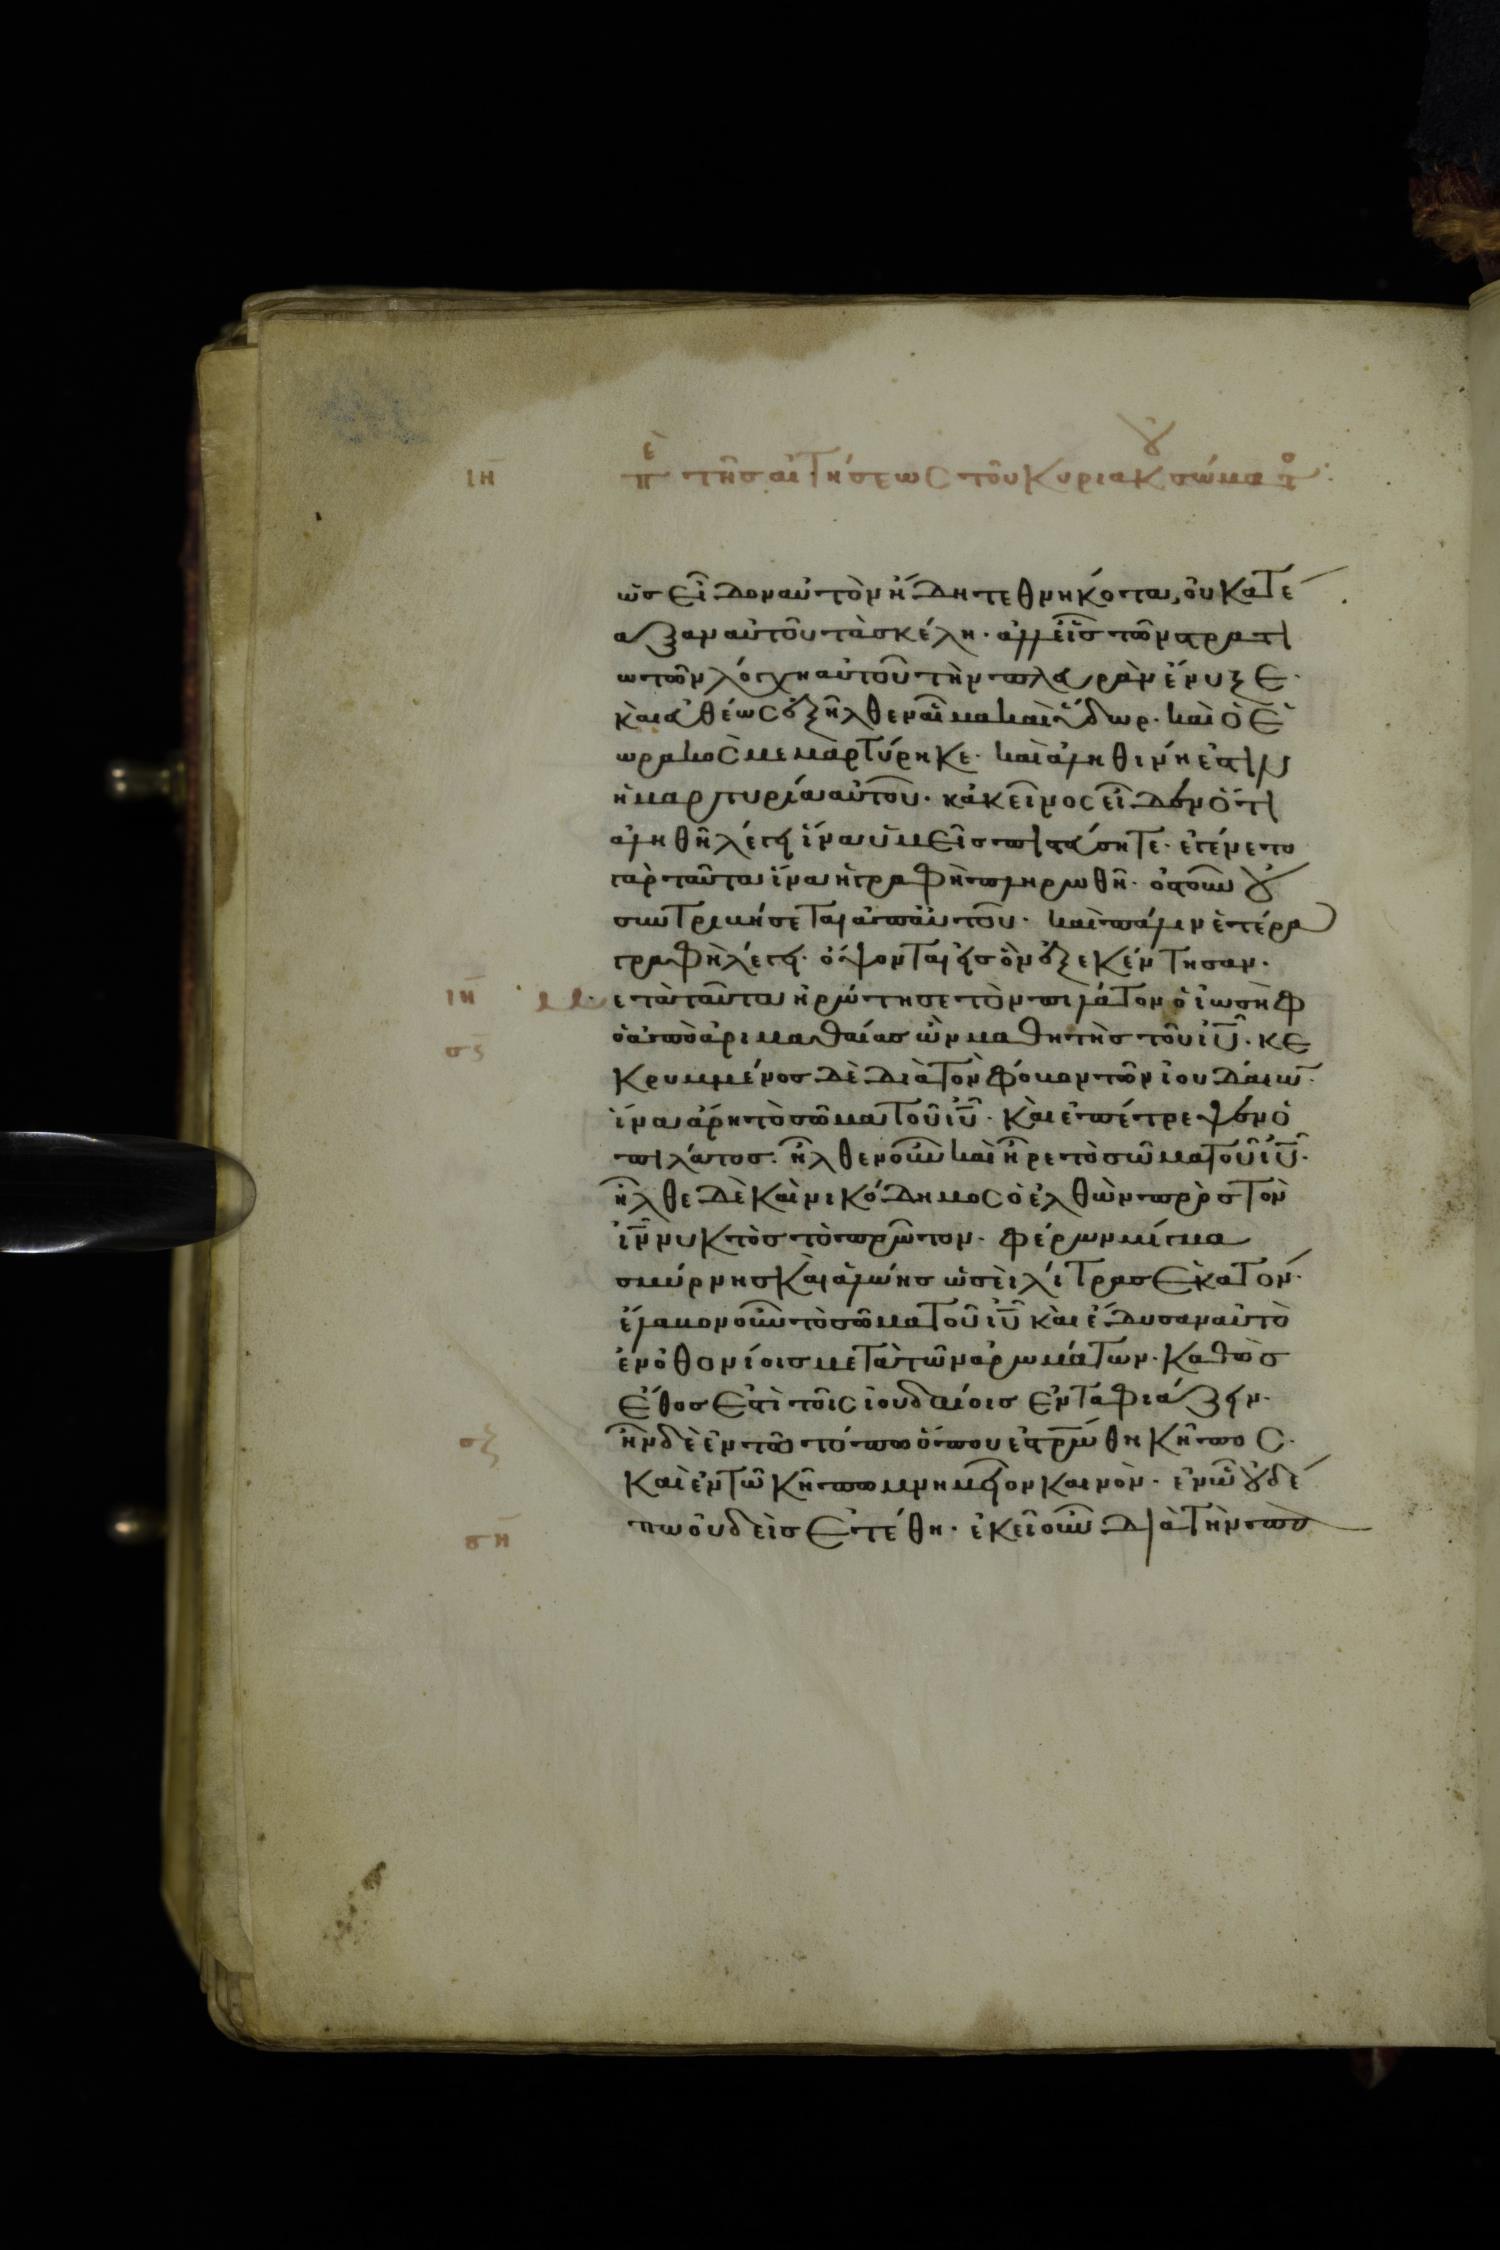 ιη περ τῆς αἰτήσεως τοῦ κυριακοῦ σώματο:
ὡς εἶδον αὐτὸν ἤδη τεθνηκότα, οὐ κατέ
αξαν αὐτοῦ τὰ σκέλη· ἀλλ εἷς τῶν στρατι
ωτῶν λόγχη αὐτοῦ τὴν πλευρὰν ἔνυξε·
καὶ εὐθέως ἐξῆλθεν αἷμα καὶ ὕδωρ· καὶ ὁ ἑ
ωρακὼς μεμαρτύρηκε· καὶ ἀληθινή ἐστιν
ἡ μαρτυρία αὐτοῦ· κἀκεῖνος εἶδεν ὅτι
ἀληθῆ λέγει ἵνα ὑμεῖς πιστεύσητε· ἐγένετο
γὰρ ταῦτα ἵνα ἡ γραφὴ πληρωθῆ· ὀστοῦν οὐ
συντριβήσεται ἀπ αὐτοῦ· καὶ πάλιν ἑτέρα
γραφὴ λέγει· ὄψονται εἰς ὃν ἐξεκέντησαν·
ιη ετὰ ταῦτα ἠρώτησε τὸν πιλάτον ὁ ἰωσὴφ
ὁ ἀπὸ ἀριμαθαίας ὢν μαθητὴς τοῦ ἰῦ· κε
σς κρυμμένος δὲ διὰ τὸν φόβον τῶν ἰουδαίων·
ἵνα ἄρη τὸ σῶμα τοῦ ἰῦ· καὶ ἐπέτρεψεν ὁ
πιλάτος· ἦλθεν οὖν καὶ ἦρε τὸ σῶμα τοῦ ἰῦ·
ἦλθε δὲ καὶ νικόδημος ὁ ἐλθὼν πρὸς τὸν
ἰν νυκτὸς τὸ πρῶτον· φέρων μίγμα
σμύρνης καὶ ἀλώης ὡσεὶ λίτρας ἑκατόν·
ἔλαβον οὖν τὸ σῶμα τοῦ ἰῦ καὶ ἔδυσαν αὐτὸ
ἐν ὀθονίοις μετὰ τῶν ἀρωμάτων· καθὼς
ἔθος ἐστὶ τοῖς ἰουδαίοις ἐνταφιάζειν·
σζ ἦν δὲ ἐν τῶ τόπω ὅπου ἐστρώθη κῆπος·
καὶ ἐν τῶ κήπω μνημεῖον καινὸν· ἐν ὧ οὐδέ
ση πω οὐδεὶς ἐτέθη· ἐκεῖ οὖν διὰ τὴν πα